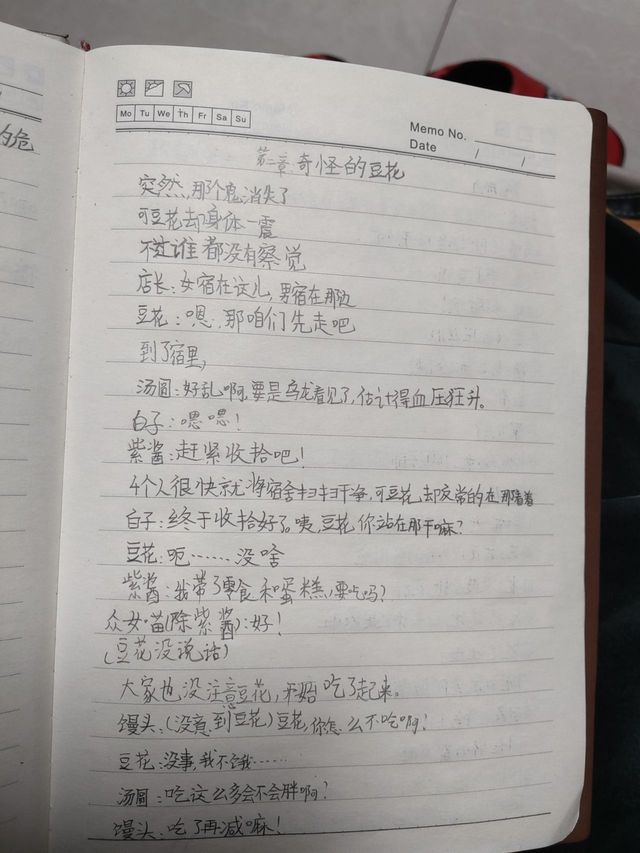 的危
Mo Tu We Th Fr Sa Su
Memo No.
Date / /
第二章 奇怪的豆花
突然,那个鬼消失了
可豆花去身体一震
谁都没有察觉
店长:女宿在这儿,男宿在那边
豆花:嗯,那咱们先走吧
到了宿里,
汤圆:好乱啊,要是乌龙看见了,估计得血压狂升。
白子:嗯嗯!
紫酱:赶紧收拾吧!
4个人很快就将宿舍扫扫干净,可豆花却反常的在那看着
白子:终于收拾好了。咦,豆花你站在那干嘛?
豆花:呃……没啥
紫酱:我带了零食和蛋糕,要吃吗?
众女苗(除紫酱):好!
(豆花没说话)
大家也没注意豆花,开始吃了起来。
馒头:(没意到豆花)豆花,你怎么不吃啊!
豆花:没事,我不饿……
汤圆:吃这么多会不会胖啊?
馒头:吃了再减嘛!